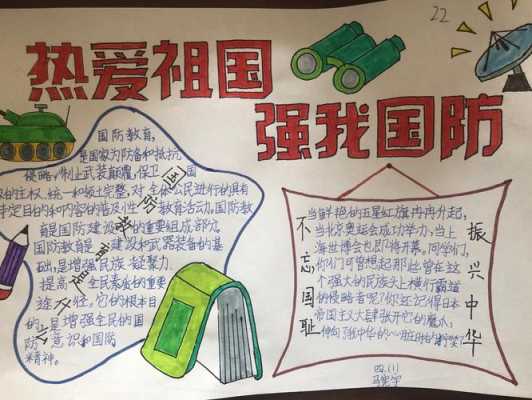 22
热爱祖国
强我国防
国防教育,
是国家为防备和抵抗
侵略,制止武装颠覆,保卫国
的主权、统一和领土完整,对全体公民进行的具有
特定目的和内容的普及性教育活动。国防教
育是国防建设的重要组成部分,
国防教育是建设和武器装备的基
础,是增强民族凝聚力、
提高全民素养的重要
途径。它的根本目
的,是增强全民的国
防意识和国防
精神。
国防教育
不忘国耻
当鲜艳的五星红旗冉冉升起,
当北京奥运会成功举办,当上
海世博会也即将开幕,同学们,
你们可曾想起那些曾在这
个强大的民族头上横行霸道
的侵略者呢?你还记得日本
帝国主义大肆张开它的魔爪,
伸向我中华的心脏时的
振兴中华
四.(1)